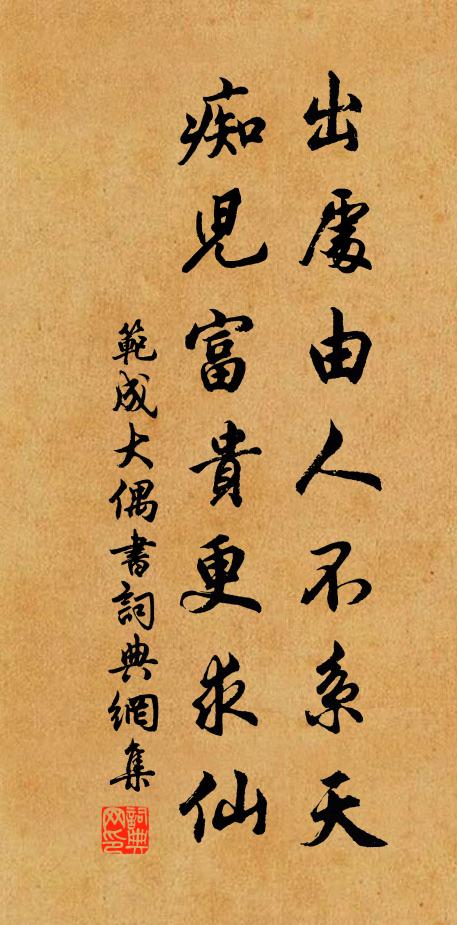 出處由人不系天
痴児富貴更求仙
範成大偶書詞典網集
詞典网印